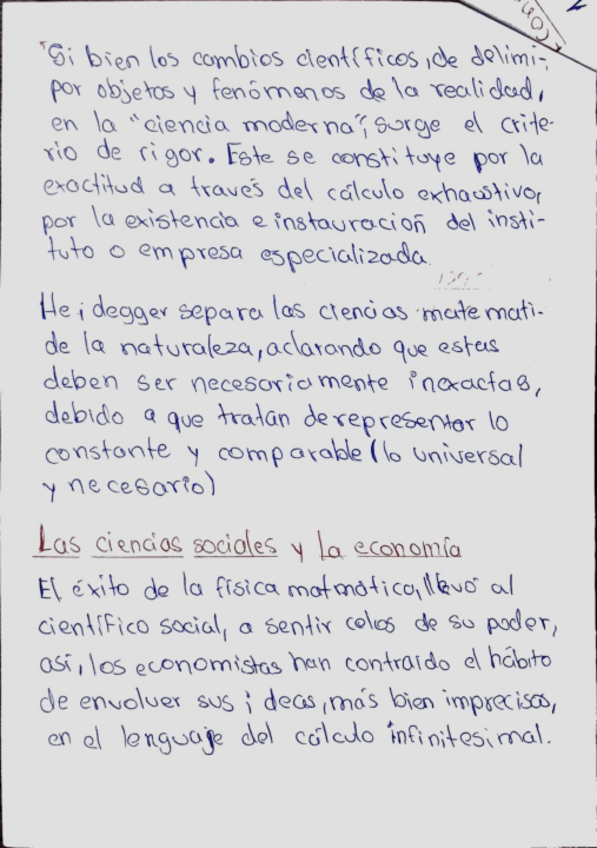 Con
"Si bien los cambios científicos, de delimi-
por objetos y fenómenos de la realidad,
en la "ciencia moderna", surge el crite-
rio de rigor. Este se constituye por la
exactitud a través del cálculo exhaustivo,
por la existencia e instauración del insti-
tuto o empresa especializada.
Heidegger separa las ciencias matemati-
de la naturaleza, aclarando que estas
deben ser necesariamente inexactas,
debido a que tratan de representar lo
constante y comparable (lo universal
y necesario)
Las ciencias sociales y la economía
El éxito de la física matmática, llevó al
científico social, a sentir celos de su poder,
así, los economistas han contraído el hábito
de envolver sus ideas, más bien imprecisas,
en el lenguaje del cálculo infinitesimal.